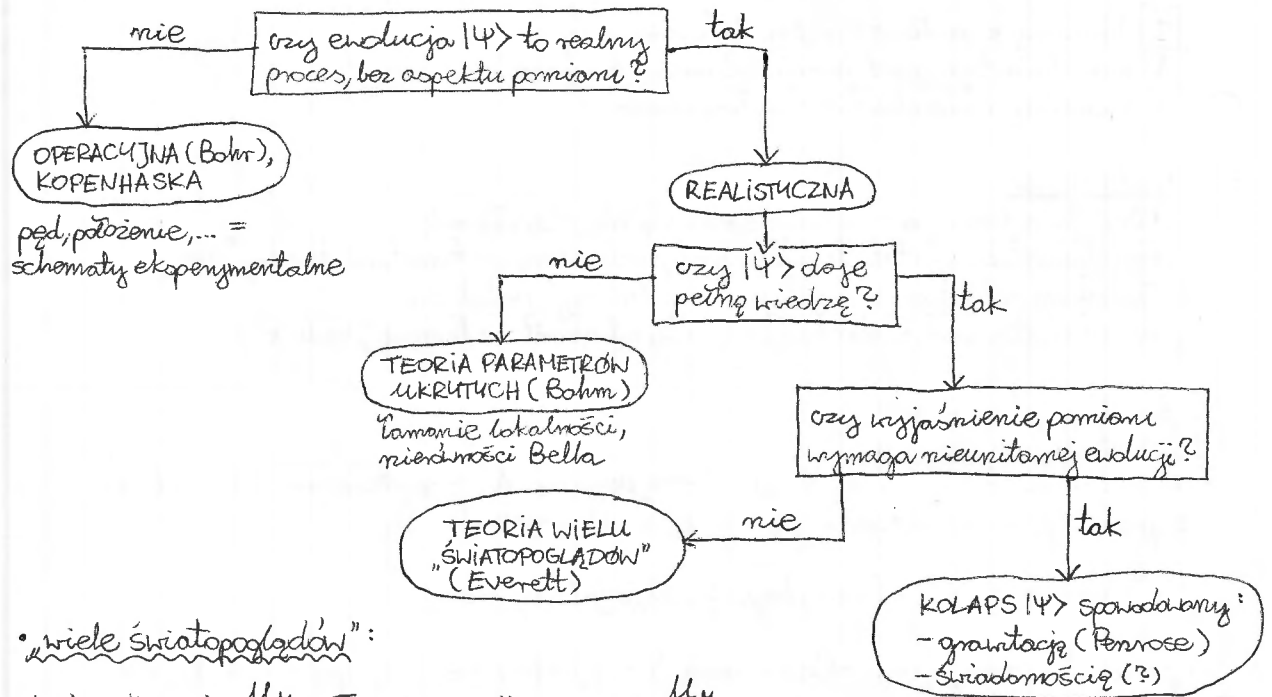 nie
czy ewolucja |Ψ> to realny
proces, bez aspektu pomiaru?
tak
OPERACYJNA (Bohr),
KOPENHASKA
pęd, położenie,... =
schematy eksperymentalne
REALISTYCZNA
nie
czy |Ψ> daje
pełną wiedzę?
tak
TEORIA PARAMETRÓW
UKRYTYCH (Bohm)
łamanie lokalności,
nierówności Bella
czy wyjaśnienie pomiaru
wymaga nieunitarnej ewolucji?
nie
tak
TEORIA WIELU
„ŚWIATOPOGLĄDÓW"
(Everett)
KOLAPS |Ψ> spowodowany:
- grawitacją (Penrose)
- świadomością (?)
• „wiele światopoglądów":